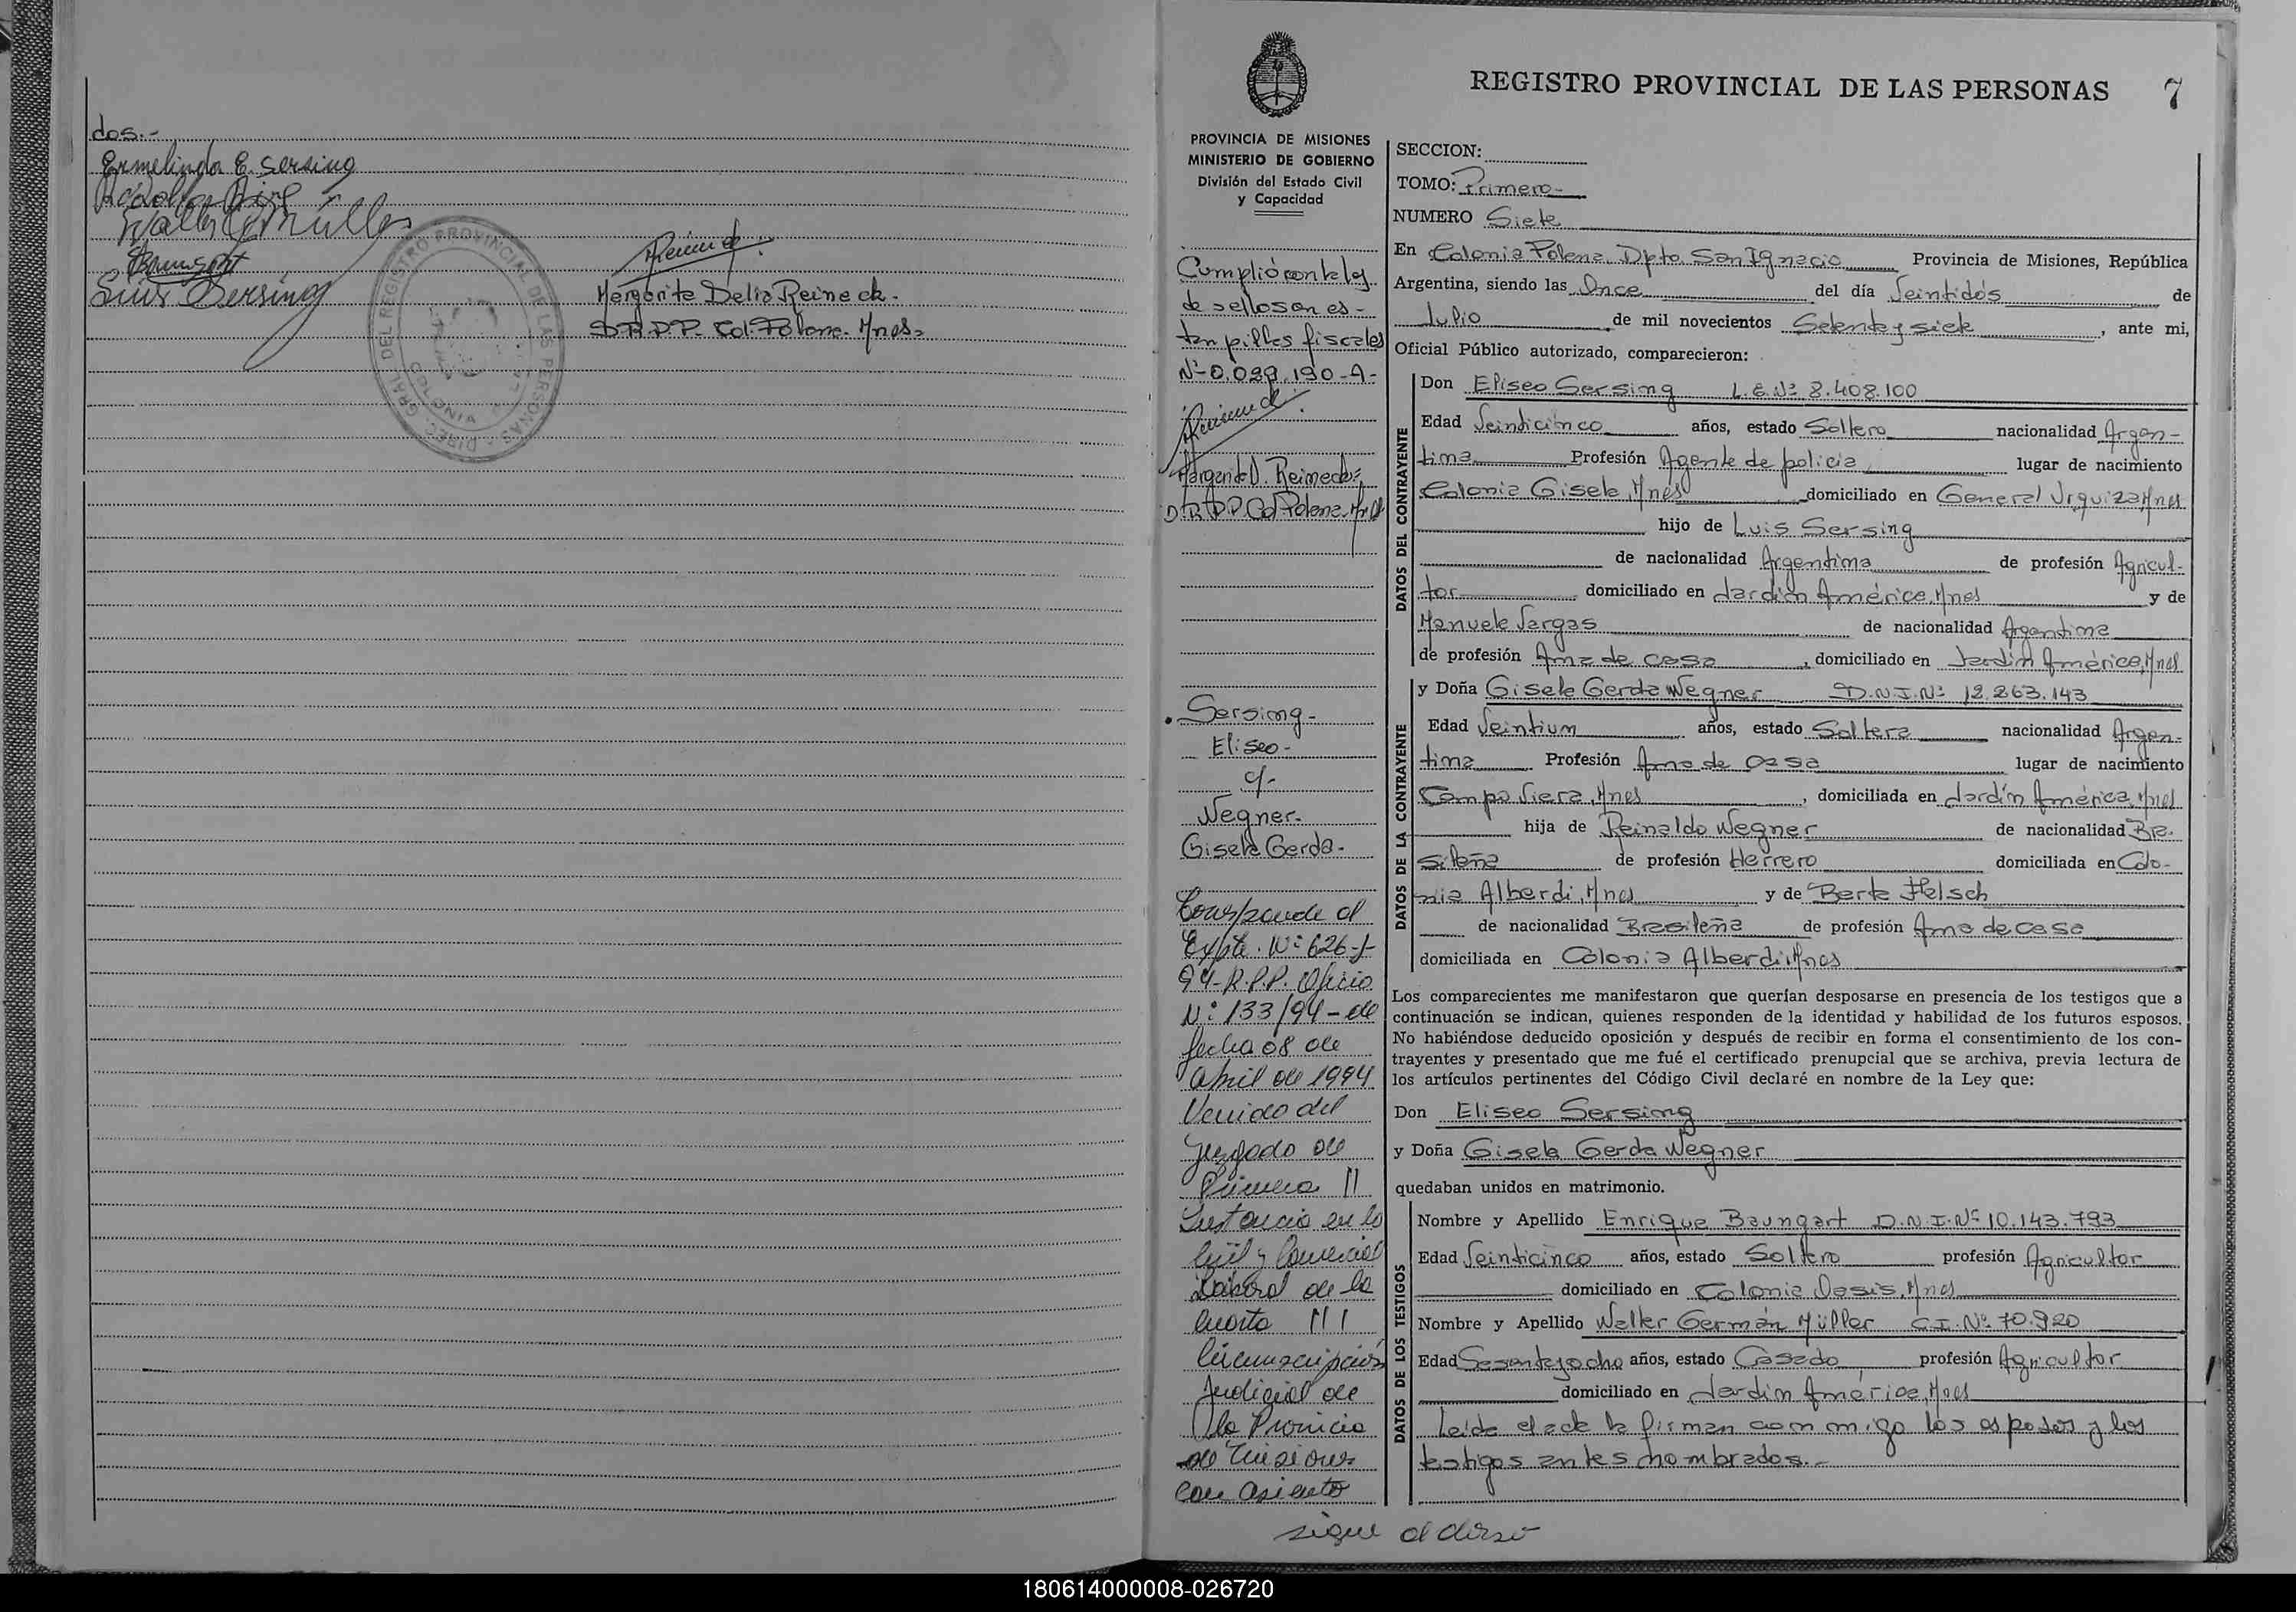 dos.-
Ermelinda E. Sersing
Walter G Müller
Luis Sersing
Margarita Delia Reineck.
D.R.P.P. Col. Polana. Mnes.
REGISTRO PROVINCIAL DE LAS PERSONAS 7
PROVINCIA DE MISIONES
MINISTERIO DE GOBIERNO
División del Estado Civil
y Capacidad
Cumplió con la ley
de sellos en es-
tampillas fiscales
Nº 0.099.190-A-
Margarita D. Reineck
D.R.P.P. Col Polana. Mnes
Sersing-
Eliseo-
c/-
Wegner-
Gisela Gerda-
Corresponde al
Expte. Nº 626-J-
94-R.P.P. Oficio
Nº: 133/94-de
fecha 08 de
abril de 1994
Venido del
Juzgado de
Primera //
Instancia en lo
Civil y Comercial
Laboral de la
Cuarta ///
Circunscripción
Judicial de
la Provincia
de Misiones
con asiento
sigue al dorso
SECCION:
TOMO: Primero-
NUMERO Siete
En Colonia Polana Dpto. San Ignacio Provincia de Misiones, República
Argentina, siendo las Once del día Veintidós de
Julio de mil novecientos Setenta y siete, ante mi,
Oficial Público autorizado, comparecieron:
DATOS DEL CONTRAYENTE
Don Eliseo Sersing L.E.Nº 8.408.100
Edad Veinticinco años, estado Soltero nacionalidad Argen-
tina Profesión Agente de policia lugar de nacimiento
Colonia Gisela, Mnes domiciliado en General Urquiza, Mnes
hijo de Luis Sersing
de nacionalidad Argentina de profesión Agricul-
tor domiciliado en Jardín América, Mnes y de
Manuela Vargas de nacionalidad Argentina
de profesión Ama de casa, domiciliado en Jardín América, Mnes
DATOS DE LA CONTRAYENTE
y Doña Gisela Gerda Wegner D.N.I.Nº 12.263.143
Edad Veintiun años, estado Soltera nacionalidad Argen-
tina Profesión Ama de casa lugar de nacimiento
Campo Viera, Mnes, domiciliada en Jardín América, Mnes
hija de Reinaldo Wegner de nacionalidad Bra-
sileña de profesión Herrero domiciliada en Colo-
nia Alberdi, Mnes y de Berta Helsch
de nacionalidad Brasileña de profesión Ama de casa
domiciliada en Colonia Alberdi, Mnes
Los comparecientes me manifestaron que querían desposarse en presencia de los testigos que a
continuación se indican, quienes responden de la identidad y habilidad de los futuros esposos.
No habiéndose deducido oposición y después de recibir en forma el consentimiento de los con-
trayentes y presentado que me fué el certificado prenupcial que se archiva, previa lectura de
los artículos pertinentes del Código Civil declaré en nombre de la Ley que:
Don Eliseo Sersing
y Doña Gisela Gerda Wegner
quedaban unidos en matrimonio.
DATOS DE LOS TESTIGOS
Nombre y Apellido Enrique Baungart D.N.I.Nº 10.143.793
Edad Veinticinco años, estado Soltero profesión Agricultor
domiciliado en Colonia Oasis, Mnes
Nombre y Apellido Walter Germán Müller C.I. Nº 70.920
Edad Sesenta y ocho años, estado Casado profesión Agricultor
domiciliado en Jardín América, Mnes
Leída el acta la firman conmigo los esposos y los
testigos antes nombrados.-
180614000008-026720